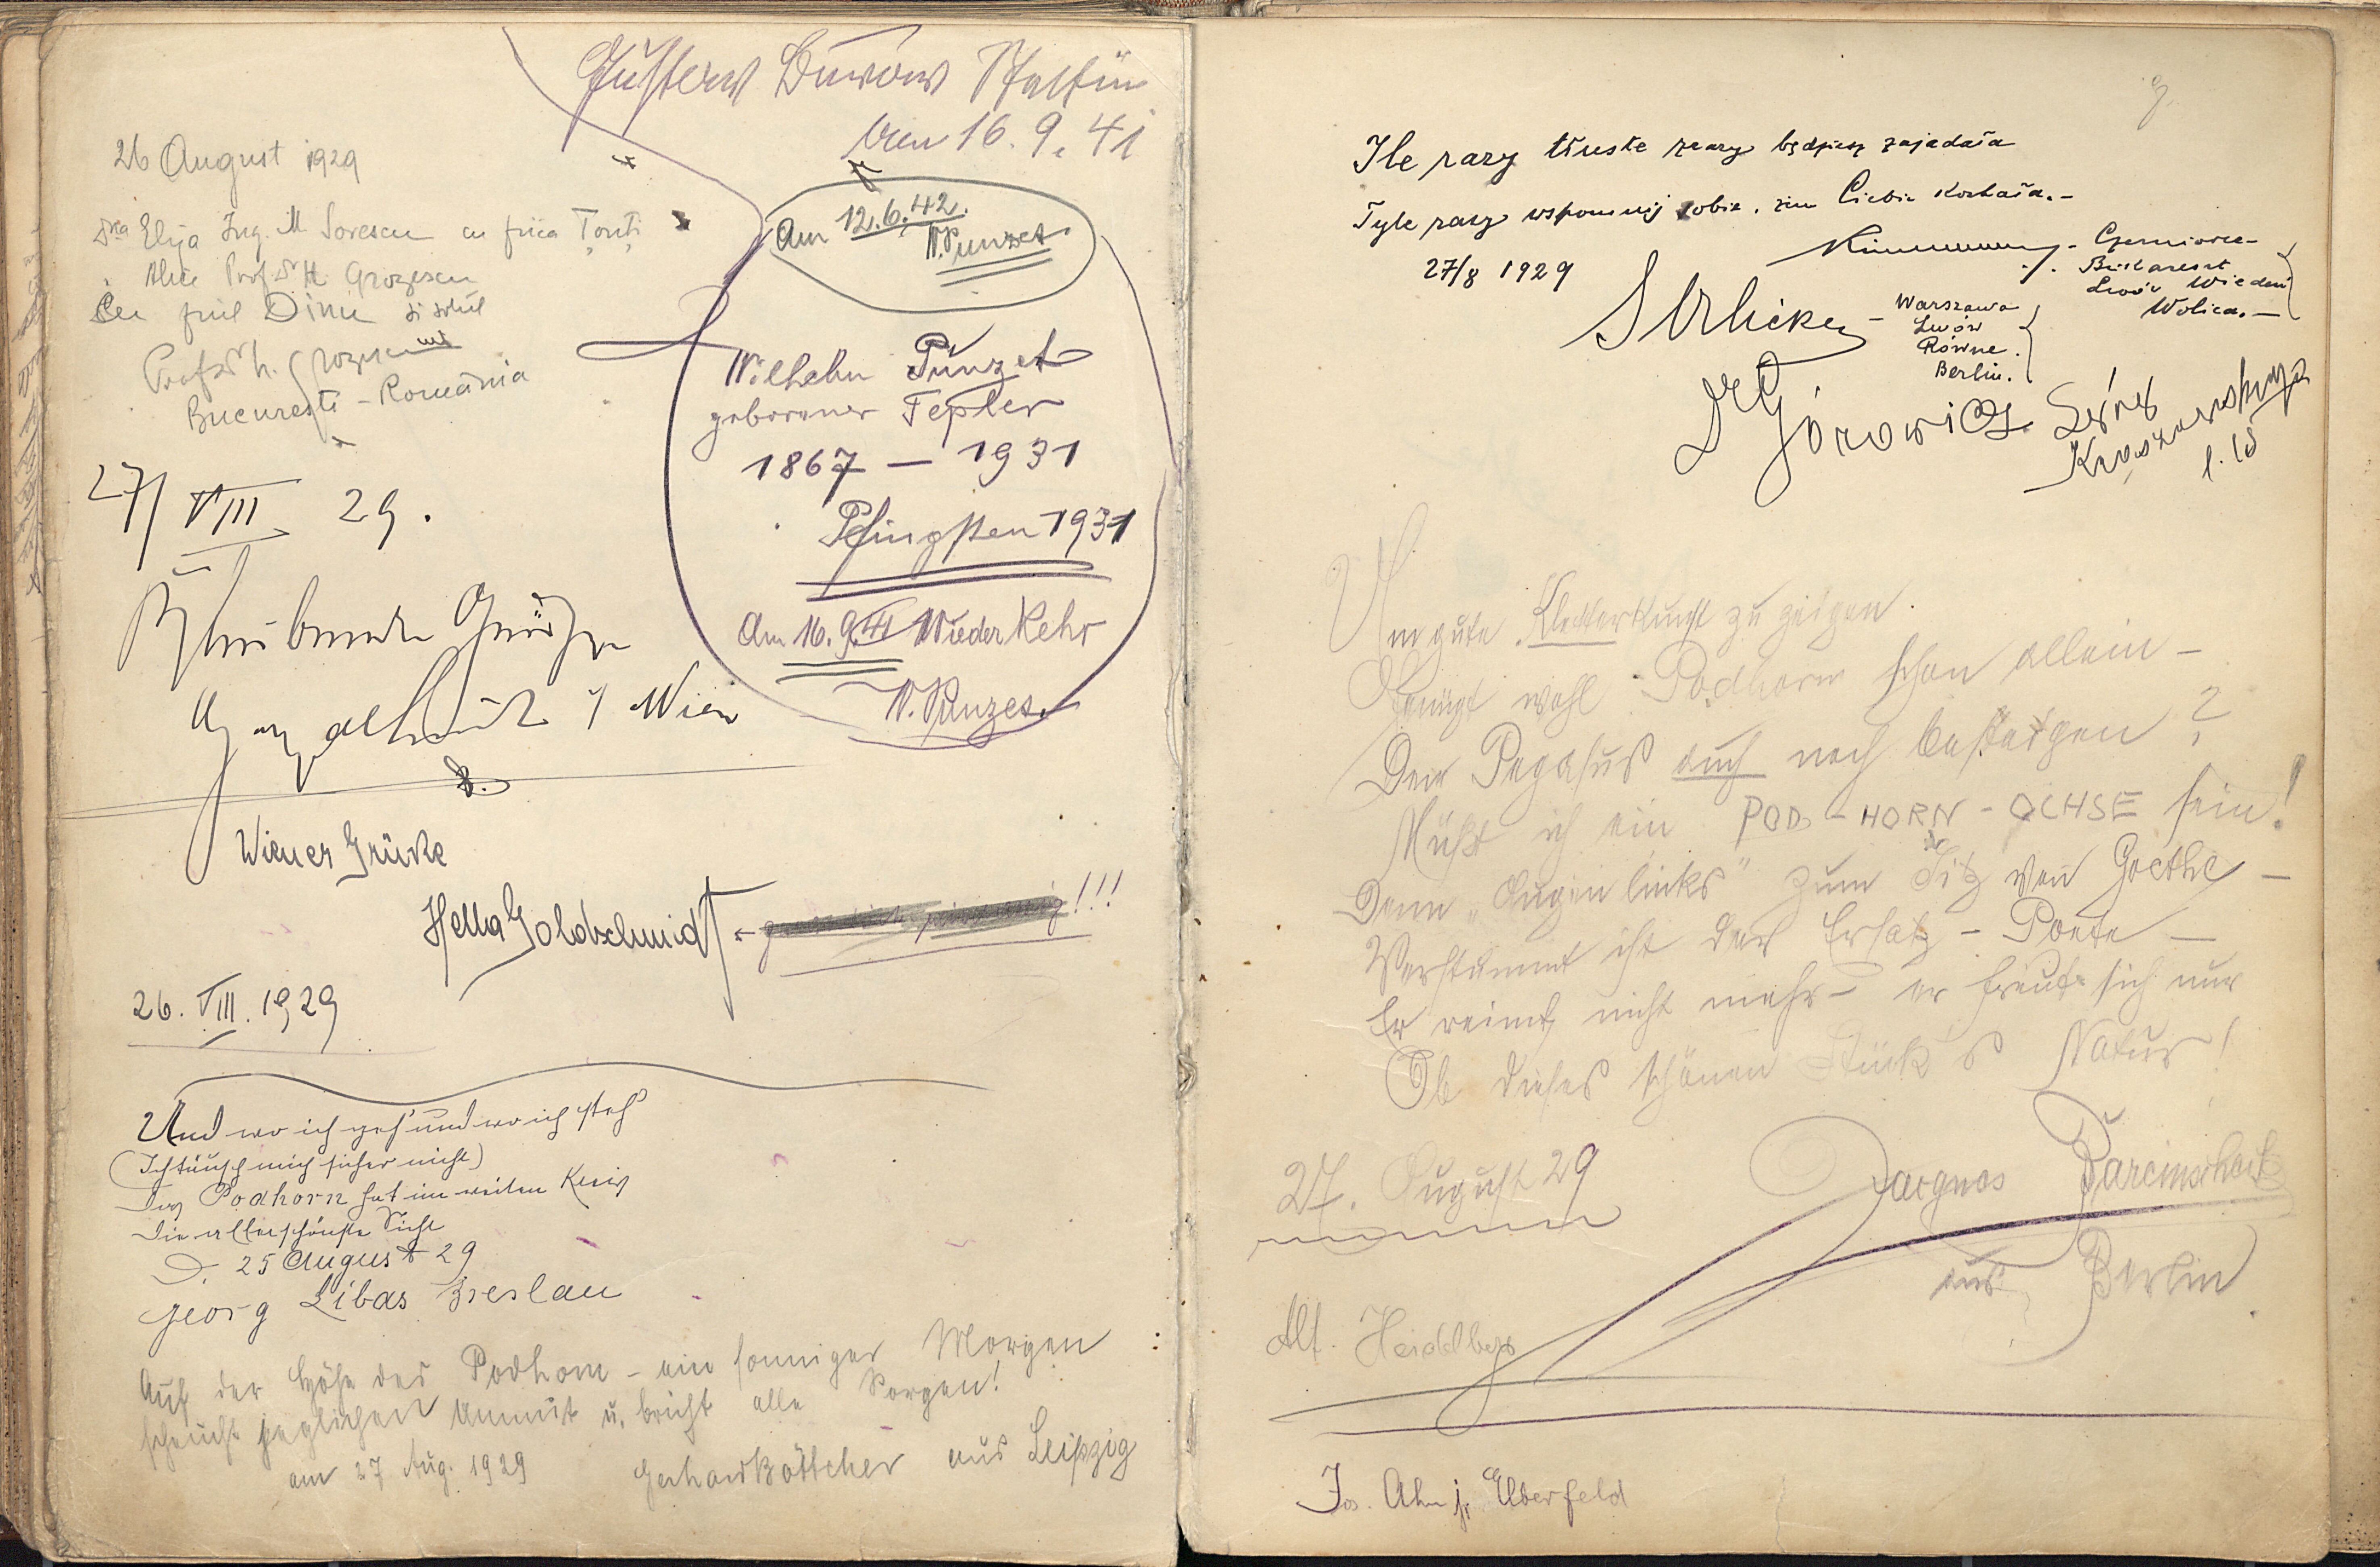 Gustav Burow Stettin
den 16. 9. 41
26 August 1929
Dna Eliza Ing. M Sorescu cu fiica Tonţi
Alice Prof. Dr H. Grozescu
cu fiul Dinu si sotul
Prof Dr h. Grozescu
Bucureşti - România
Am 12.6.42.
W. Punzet
Wilhelm Punzet
geborener Tepler
1867 – 1931
Pfingsten 1931
Am 16. 9. 41 Wiederkehr
W. Punzet
27/VIII 29.
Grüße
Wien
Wiener Grüße
Hella Goldschmidt - !!!
26. VIII. 1929
Und wo ich geh' und wo ich steh'
(Ich täusch mich sicher nicht)
Der Podhorn hat im weiten Kreis
Die allerschönste Sicht
D. 25 August 29
Georg Libas Breslau
Auf der Höhe des Podhorn - ein sonniger Morgen
scheucht jeglichen Unmut u. bricht alle Sorgen!
am 27 Aug. 1929 Gerhard Böttcher aus Leipzig
Ile razy tłuste będziesz zajadała
Tyle razy wspomnij sobie, żem Ciebie kochała.-
27/8 1929
- Czerniowce-
Bukareszt
Lwów Wiedeń
Wolica. —
- Warszawa
Lwów
Równe.
Berlin.
Dr Górowicz Lwów
l. 18
Um gute Kletterkunst zu zeigen.
Genügt wohl Podhorn schon allein -
Den Pegasus auch noch besteigen?
Müßt ich ein POD - HORN - OCHSE sein!
Denn „Augen links" zum Sitz von Goethe -
Verstummt ist der Ersatz - Poete -
Er reimt nicht mehr - er freut sich nur
Ob dieses schönen Stück's Natur!
27. August 29
aus Berlin
Alf. Heidelberg
Jos. Ahn jr. Elberfeld